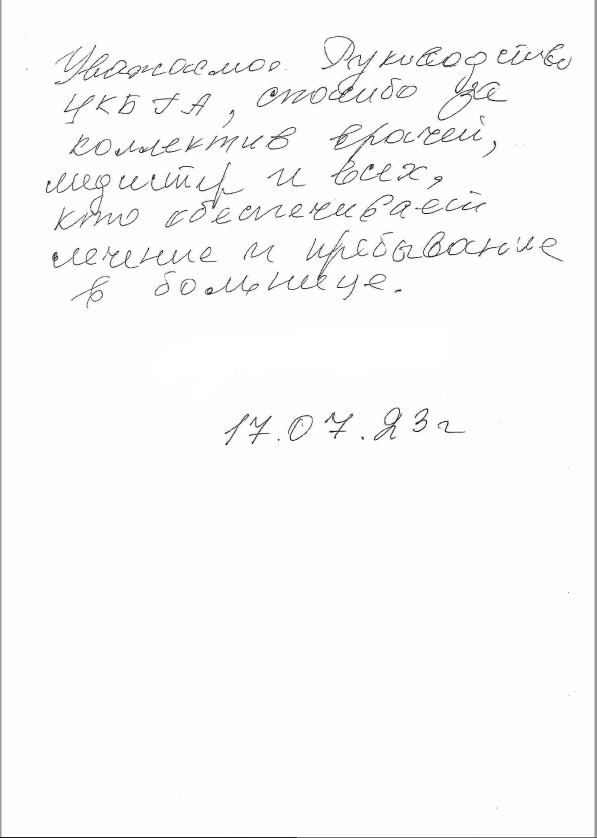 Уважаемое Руководство
ЦКБГА, спасибо за
коллектив врачей,
медистер и всех,
кто обеспечивает
лечение и пребывание
в больнице.
17.07.23г